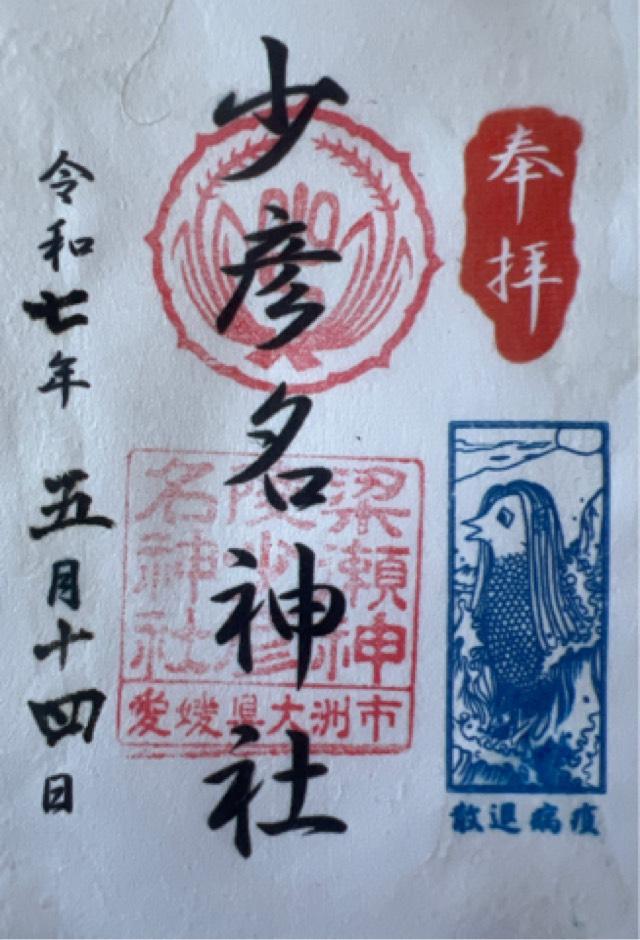 奉拝
疫病退散
少彦名神社
梁瀬神
陵少彦
名神社
愛媛県大洲市
令和七年 五月十四日